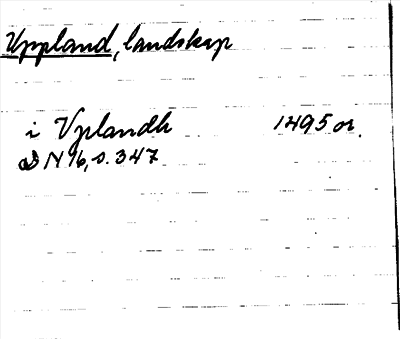 Uppland, landskap
i Vplandh 1495 or.
DN 16, s. 347